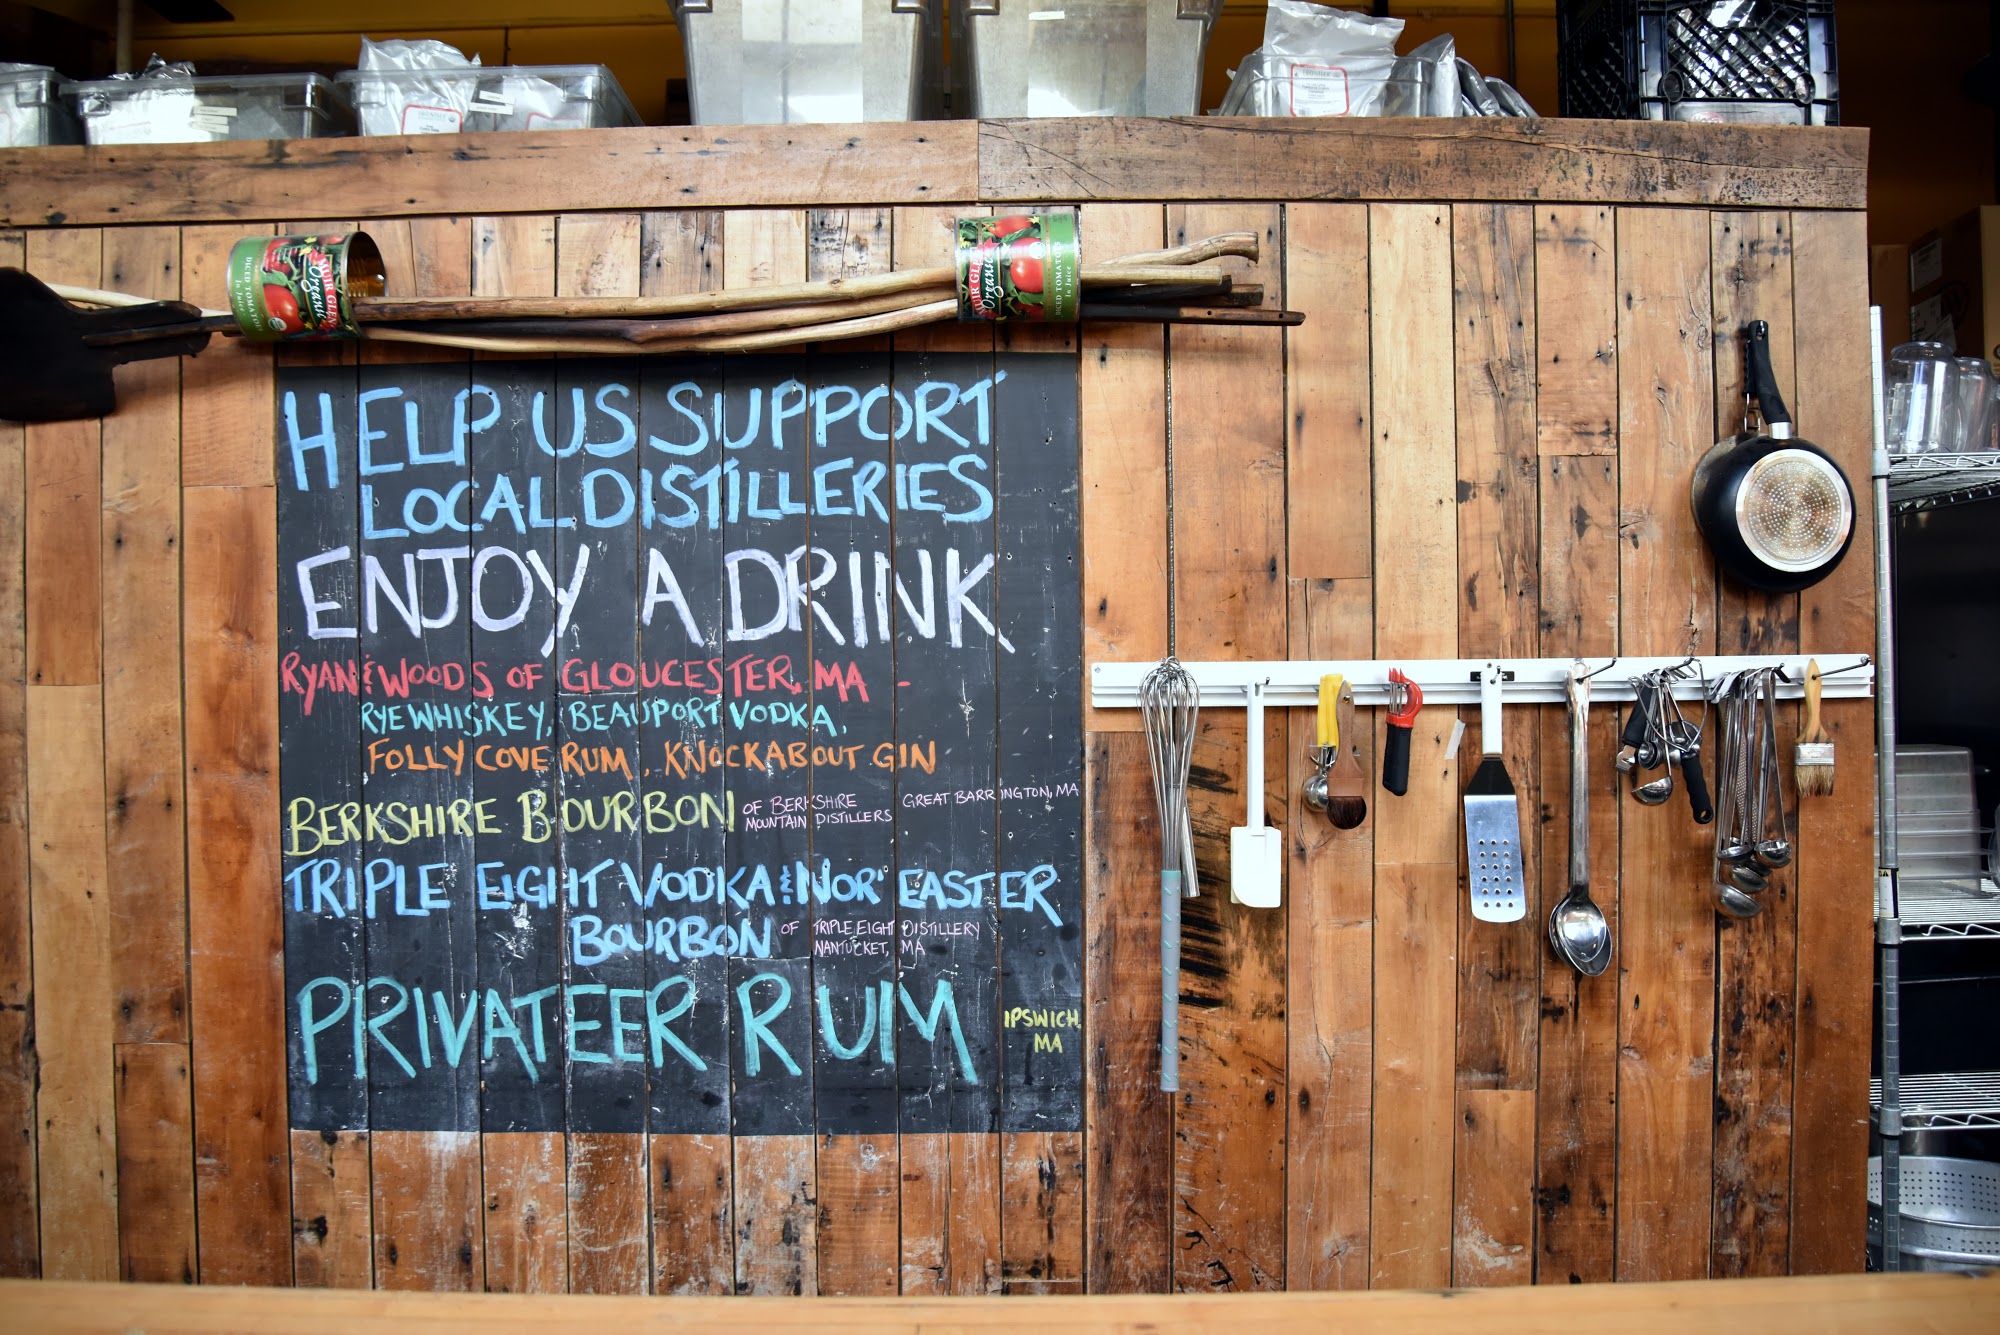 MUIR GLEN
Organic
DICED TOMATOES
In Juice
MUIR GLEN
Organic
DICED TOMATOES
In Juice
HELP US SUPPORT
LOCAL DISTILLERIES
ENJOY A DRINK
RYAN & WOODS OF GLOUCESTER, MA -
RYE WHISKEY, BEAUPORT VODKA,
FOLLY COVE RUM, KNOCKABOUT GIN
BERKSHIRE BOURBON OF BERKSHIRE MOUNTAIN DISTILLERS GREAT BARRINGTON, MA
TRIPLE EIGHT VODKA & NOR' EASTER
BOURBON OF TRIPLE EIGHT DISTILLERY NANTUCKET, MA
PRIVATEER RUM IPSWICH, MA